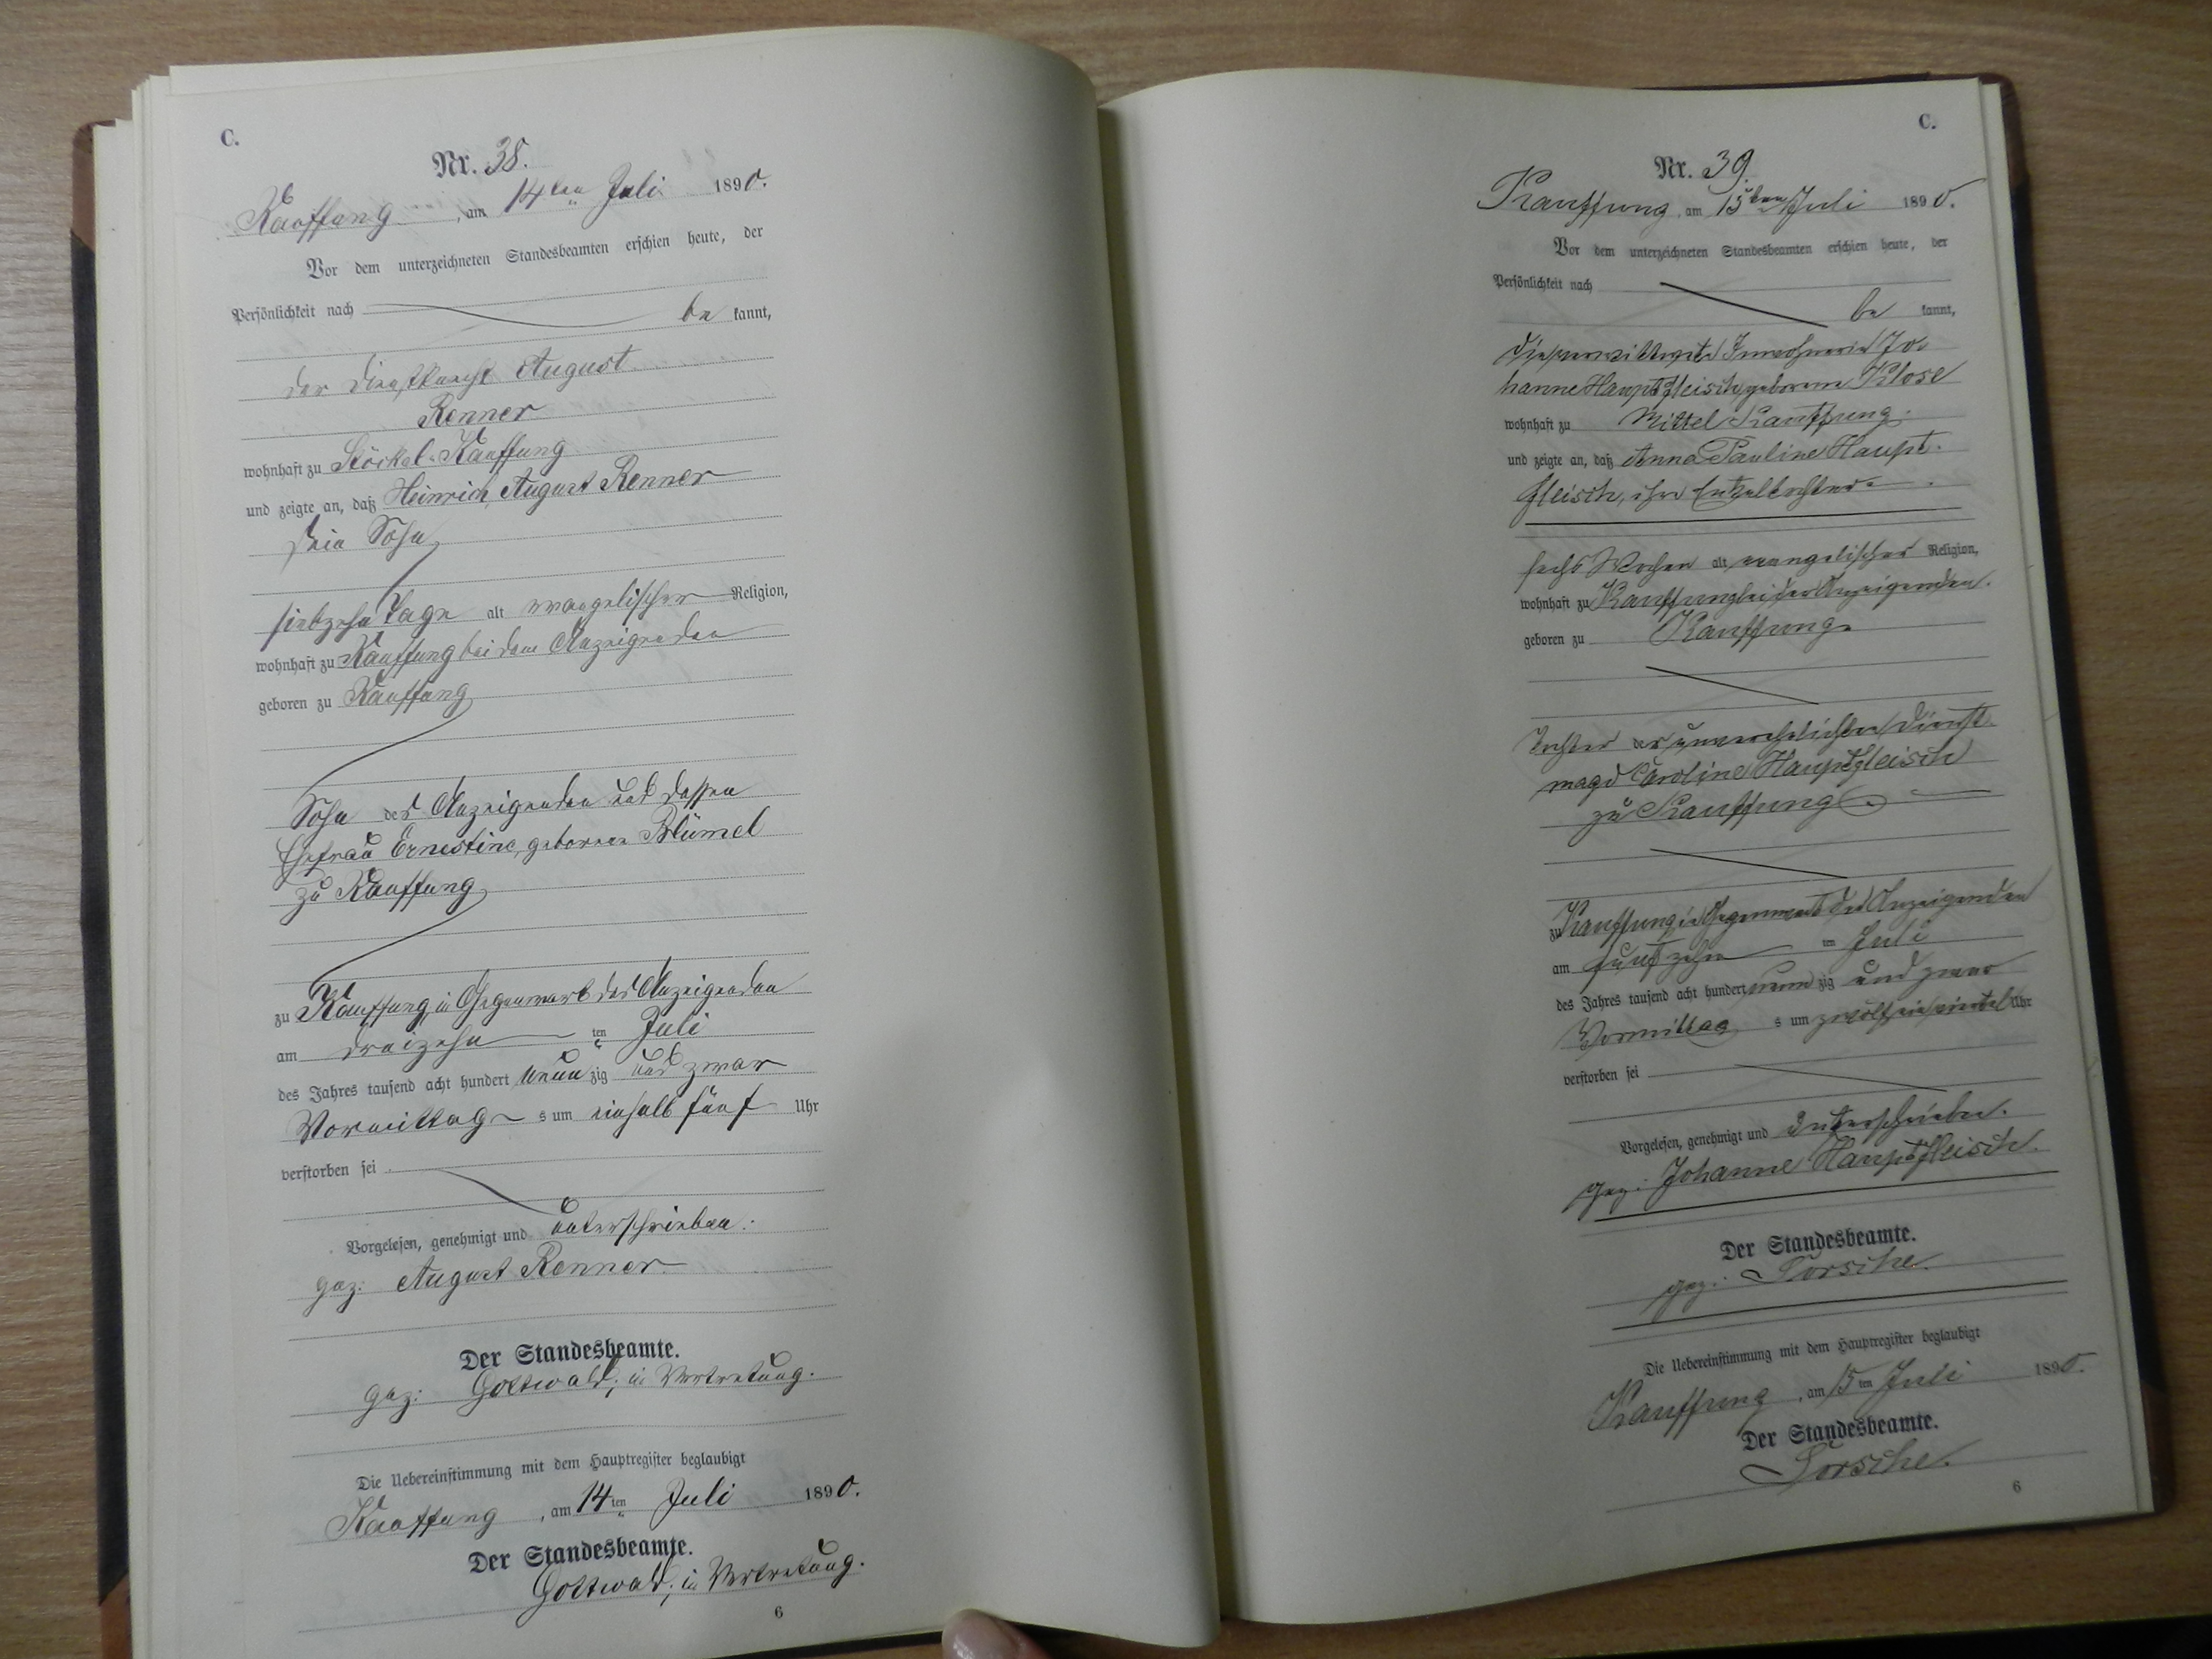 C.
Nr. 38.
Kauffung, am 14ten Juli 1890.
Vor dem unterzeichneten Standesbeamten erschien heute, der
Persönlichkeit nach
be kannt,
der Dienstknecht August
Renner
wohnhaft zu Stöckel-Kauffung
und zeigte an, daß Heinrich August Renner
sein Sohn,
siebzehn Tage alt evangelischer Religion,
wohnhaft zu Kauffung bei dem Anzeigenden
geboren zu Kauffung
Sohn des Anzeigenden und dessen
Ehefrau Ernestine, geborene Blümel
zu Kauffung
zu Kauffung in Gegenwart des Anzeigenden
am dreizehn ten Juli
des Jahres tausend acht hundert neun zig und zwar
Vormittag s um einhalb fünf Uhr
verstorben sei
Vorgelesen, genehmigt und unterschrieben.
gez: August Renner
Der Standesbeamte.
gez: Gottwald, in Vertretung.
Die Uebereinstimmung mit dem Hauptregister beglaubigt
Kauffung, am 14ten Juli 1890.
Der Standesbeamte.
Gottwald, in Vertretung.
6
C.
Nr. 39.
Kauffung, am 15ten Juli 1890.
Vor dem unterzeichneten Standesbeamten erschien heute, der
Persönlichkeit nach
be kannt,
die verwittwete Inwohnerin Jo-
hanne Hauptfleisch geborene Klose
wohnhaft zu Mittel Kauffung.
und zeigte an, daß Anna Pauline Haupt-
fleisch, ihre Enkeltochter
sechs Wochen alt evangelischer Religion,
wohnhaft zu Kauffung bei der Anzeigenden.
geboren zu Kauffung
Tochter der unverehelichten Dienst-
magd Caroline Hauptfleisch
zu Kauffung
zu Kauffung in Gegenwart der Anzeigenden
am fünfzehn ten Juli
des Jahres tausend acht hundert neun zig und zwar
Vormittag s um zwölf ein viertel Uhr
verstorben sei
Vorgelesen, genehmigt und unterschrieben.
gez: Johanne Hauptfleisch.
Der Standesbeamte.
gez: Forsche.
Die Uebereinstimmung mit dem Hauptregister beglaubigt
Kauffung, am 15ten Juli 1890.
Der Standesbeamte.
Forsche.
6